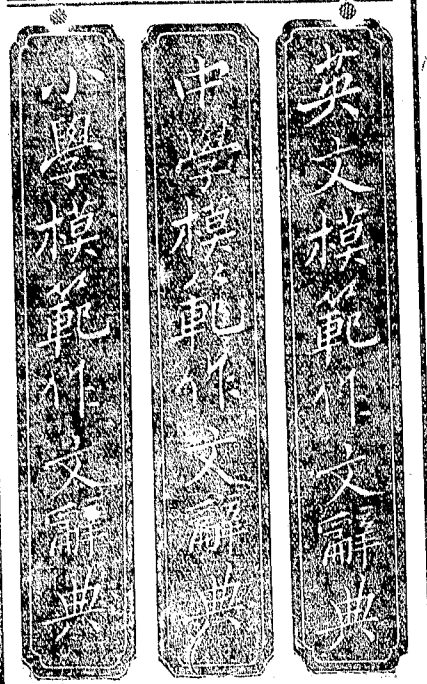 英文模範作文辭典
中学模範作文辭典
小學模範作文辭典